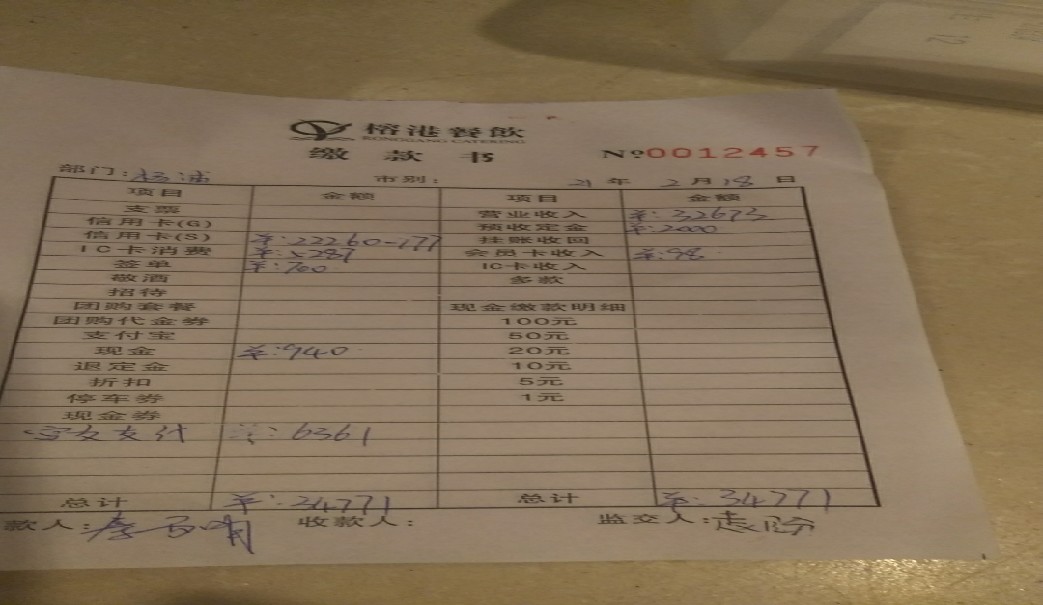 榕港餐飲
RONGGANG CATERING
缴款书 Nº0012457
部门:杨浦 市别: 21年2月18日
项目 金额 项目 金额
支票 营业收入 ¥:32673
信用卡(G) 预收定金 ¥:2000
信用卡(S) ¥:22260-177 挂账收回
IC卡消费 ¥:5287 会员卡收入 ¥:98
签单 ¥:700 IC卡收入
敬酒 多款
招待
团购套餐 现金缴款明细
团购代金券 100元
支付宝 50元
现金 ¥:940 20元
退定金 10元
折扣 5元
停车券 1元
现金券
支付 ¥:6361
总计 ¥:34771 总计 ¥:34771
款人: 收款人: 监交人: